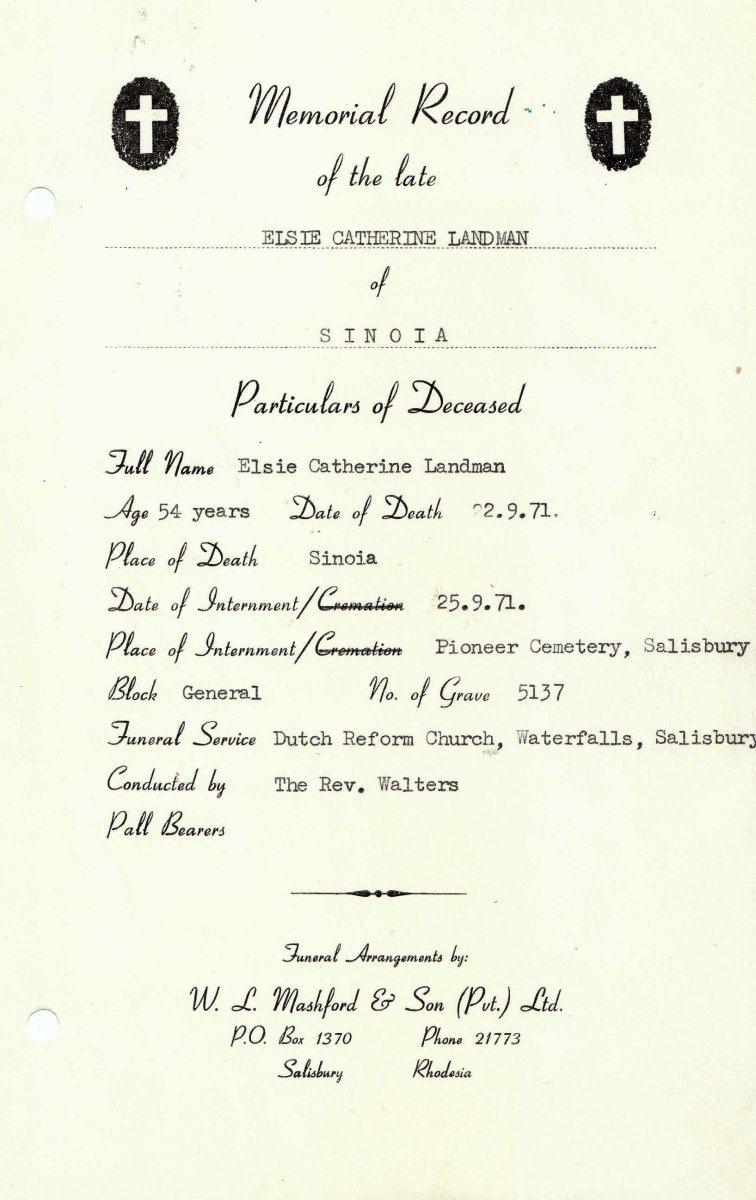 Memorial Record
of the late
ELSIE CATHERINE LANDMAN
of
SINOIA
Particulars of Deceased
Full Name Elsie Catherine Landman
Age 54 years Date of Death 22.9.71.
Place of Death Sinoia
Date of Internment/Cremation 25.9.71.
Place of Internment/Cremation Pioneer Cemetery, Salisbury
Block General No. of Grave 5137
Funeral Service Dutch Reform Church, Waterfalls, Salisbury
Conducted by The Rev. Walters
Pall Bearers
Funeral Arrangements by:
W. L. Mashford & Son (Pvt.) Ltd.
P.O. Box 1370 Phone 21773
Salisbury Rhodesia